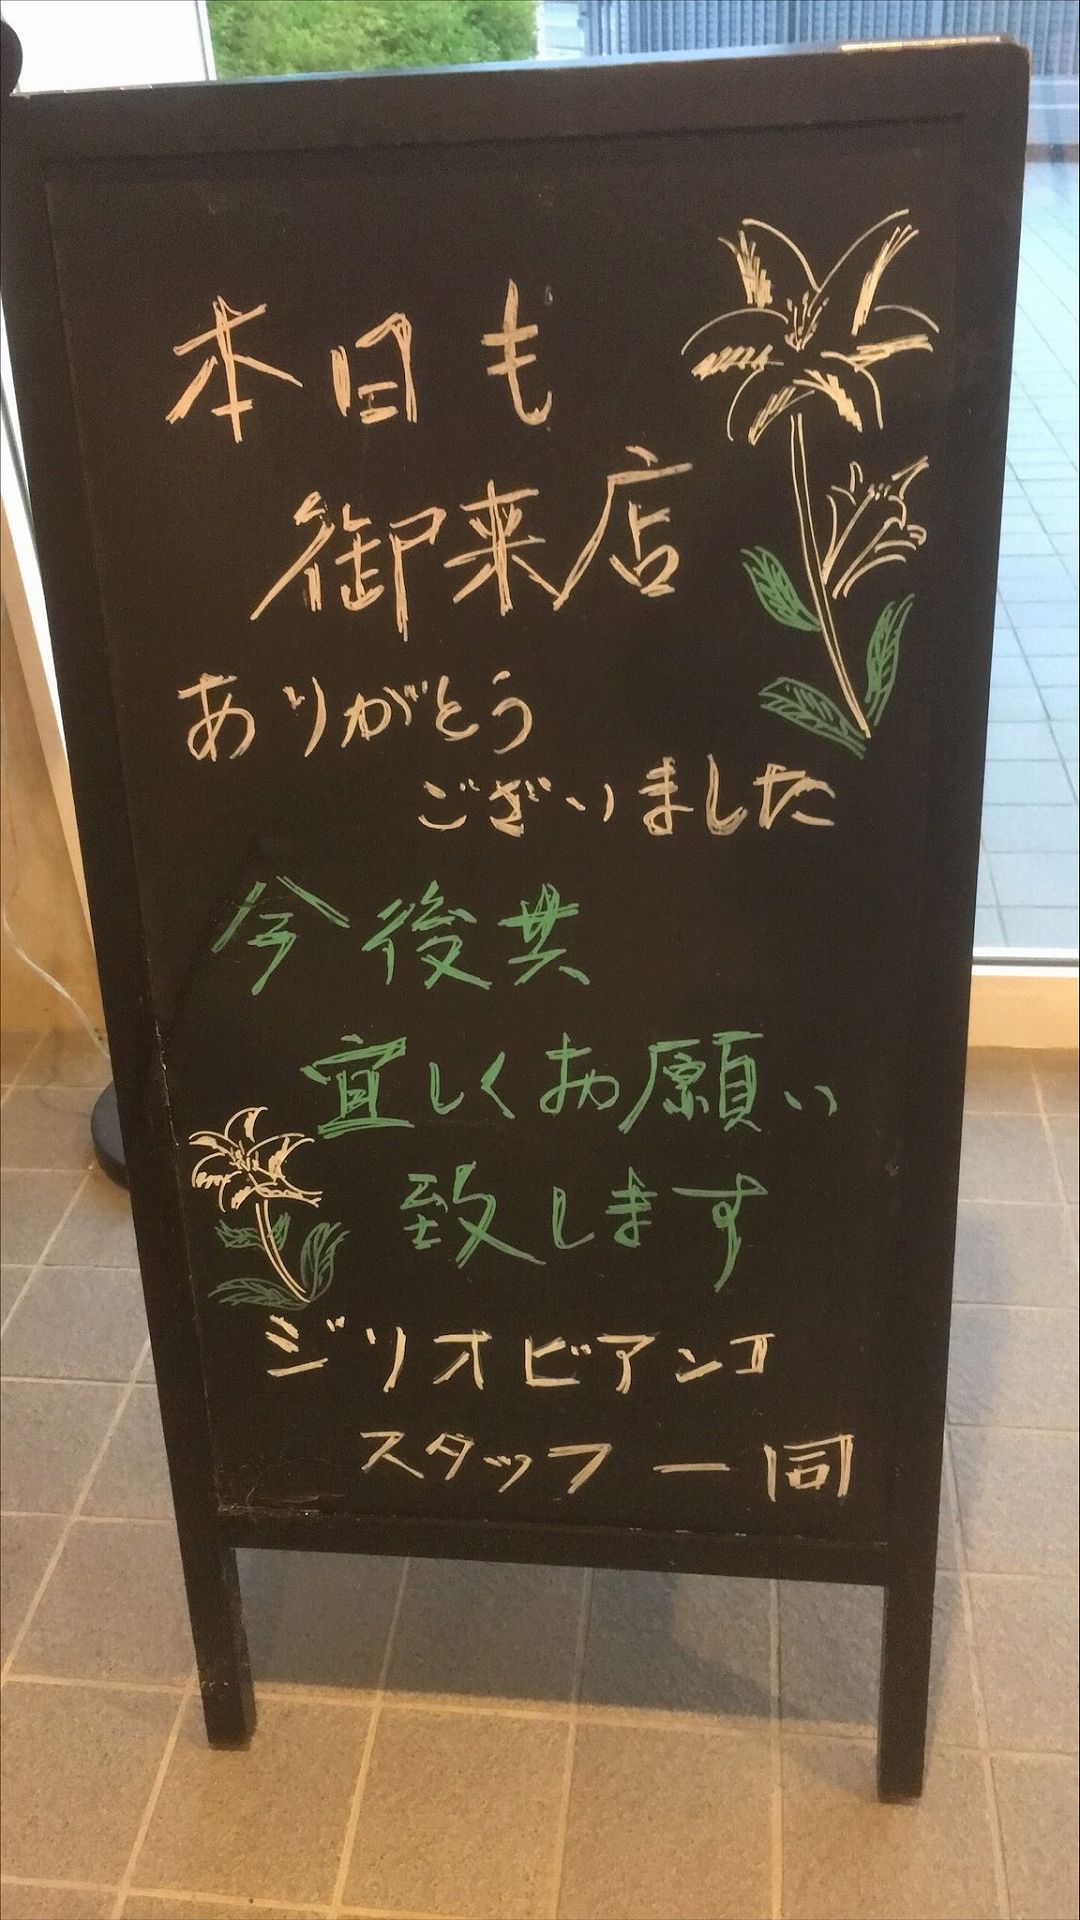 本日も
御来店
ありがとう
ございました
今後共
宜しくお願い
致します
ジリオビアンコ
スタッフ一同